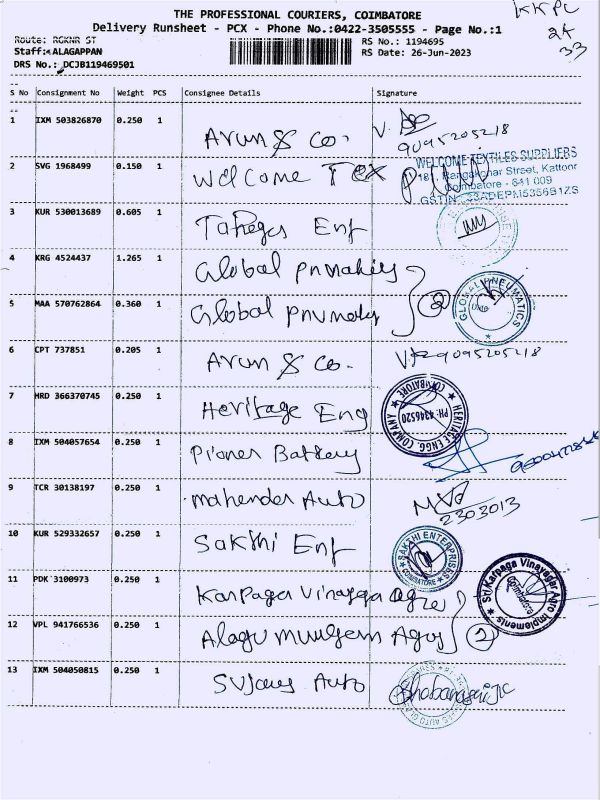 THE PROFESSIONAL COURIERS, COIMBATORE
Delivery Runsheet - PCX - Phone No.:0422-3505555 - Page No.:1
KKPL
24
33
Route: RGKNR ST
Staff: ALAGAPPAN
DRS No.: DCJB119469501
RS No.: 1194695
RS Date: 26-Jun-2023
S No Consignment No Weight PCS Consignee Details Signature
1 IXM 503826870 0.250 1 Arun & Co. 9095205218
2 SVG 1968499 0.150 1 Welcome Tex
WELCOME TEXTILES SUPPLIERS
181, Rangakonar Street, Kattoor
Coimbatore - 641 009
3 KUR 530013689 0.605 1 Enf
4 KRG 4524437 1.265 1 Global
5 MAA 570762864 0.360 1 Global
2
GLOBAL PNEUMATICS
6 CPT 737851 0.205 1 Arun & Co. 9095205218
7 HRD 366370745 0.250 1 Heritage Eng
HERITAGE ENGG. COMPANY
COIMBATORE
PH: 4346520
8 IXM 504057654 0.250 1 Pioner Battery
9 TCR 30138197 0.250 1 Mahender Auto
2303013
10 KUR 529332657 0.250 1 Sakthi Enf
SAKTHI ENTERPRISES
COIMBATORE
11 PDK 3100973 0.250 1 Karpaga Vinayga Agro
Sri Karpaga Vinayagar Agro Implements
Coimbatore
12 VPL 941766536 0.250 1 Alagu Agro
2
13 IXM 504050815 0.250 1 Auto